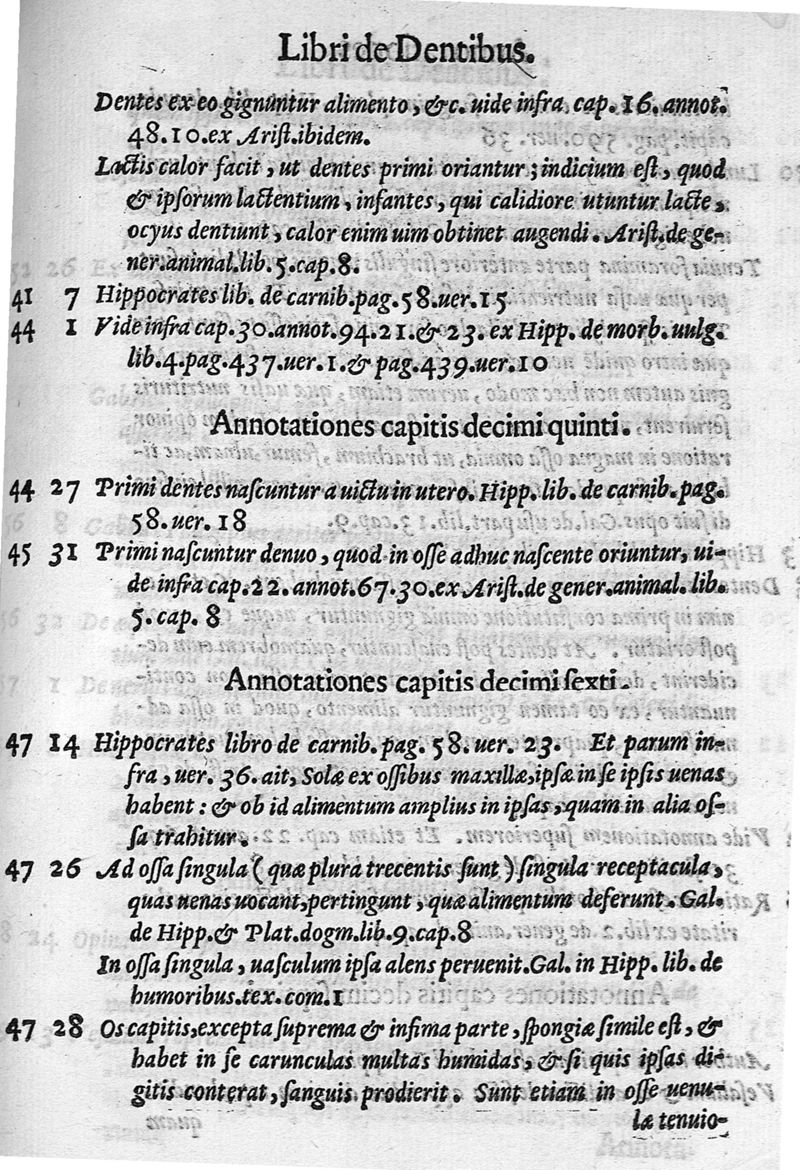 Libri de Dentibus.
Dentes ex eo gignuntur alimento, &c. uide infra, cap. 16. annot.
48.10.ex Arist.ibidem.
Lactis calor facit, ut dentes primi oriantur; indicium est, quod
& ipsorum lactentium, infantes, qui calidiore utuntur lacte,
ocyus dentiunt, calor enim uim obtinet augendi. Arist. de ge-
ner.animal.lib.5.cap.8.
41 7 Hippocrates lib. de carnib.pag.58.uer.15
44 1 Vide infra cap.30.annot.94.21.& 23. ex Hipp. de morb.uulg.
lib.4.pag.437.uer.1.& pag.439.uer.10
Annotationes capitis decimi quinti.
44 27 Primi dentes nascuntur a uictu in utero. Hipp. lib. de carnib.pag.
58.uer.18
45 31 Primi nascuntur denuo, quod in osse adhuc nascente oriuntur, ui-
de infra cap.22.annot.67.30.ex Arist.de gener.animal. lib.
5. cap. 8
Annotationes capitis decimi sexti.
47 14 Hippocrates libro de carnib.pag. 58.uer. 23. Et parum in-
fra, uer. 36. ait, Solæ ex ossibus maxillæ, ipsæ in se ipsis uenas
habent: & ob id alimentum amplius in ipsas, quam in alia os-
sa trahitur.
47 26 Ad ossa singula (quæ plura trecentis sunt) singula receptacula,
quas uenas uocant, pertingunt, quæ alimentum deferunt. Gal.
de Hipp.& Plat.dogm.lib.9.cap.8
In ossa singula, uasculum ipsa alens peruenit.Gal. in Hipp. lib. de
humoribus.tex.com.1
47 28 Os capitis, excepta suprema & infima parte, spongiæ simile est, &
habet in se carunculas multas humidas, & si quis ipsas di-
gitis conterat, sanguis prodierit. Sunt etiam in osse uenu-
læ tenuio-